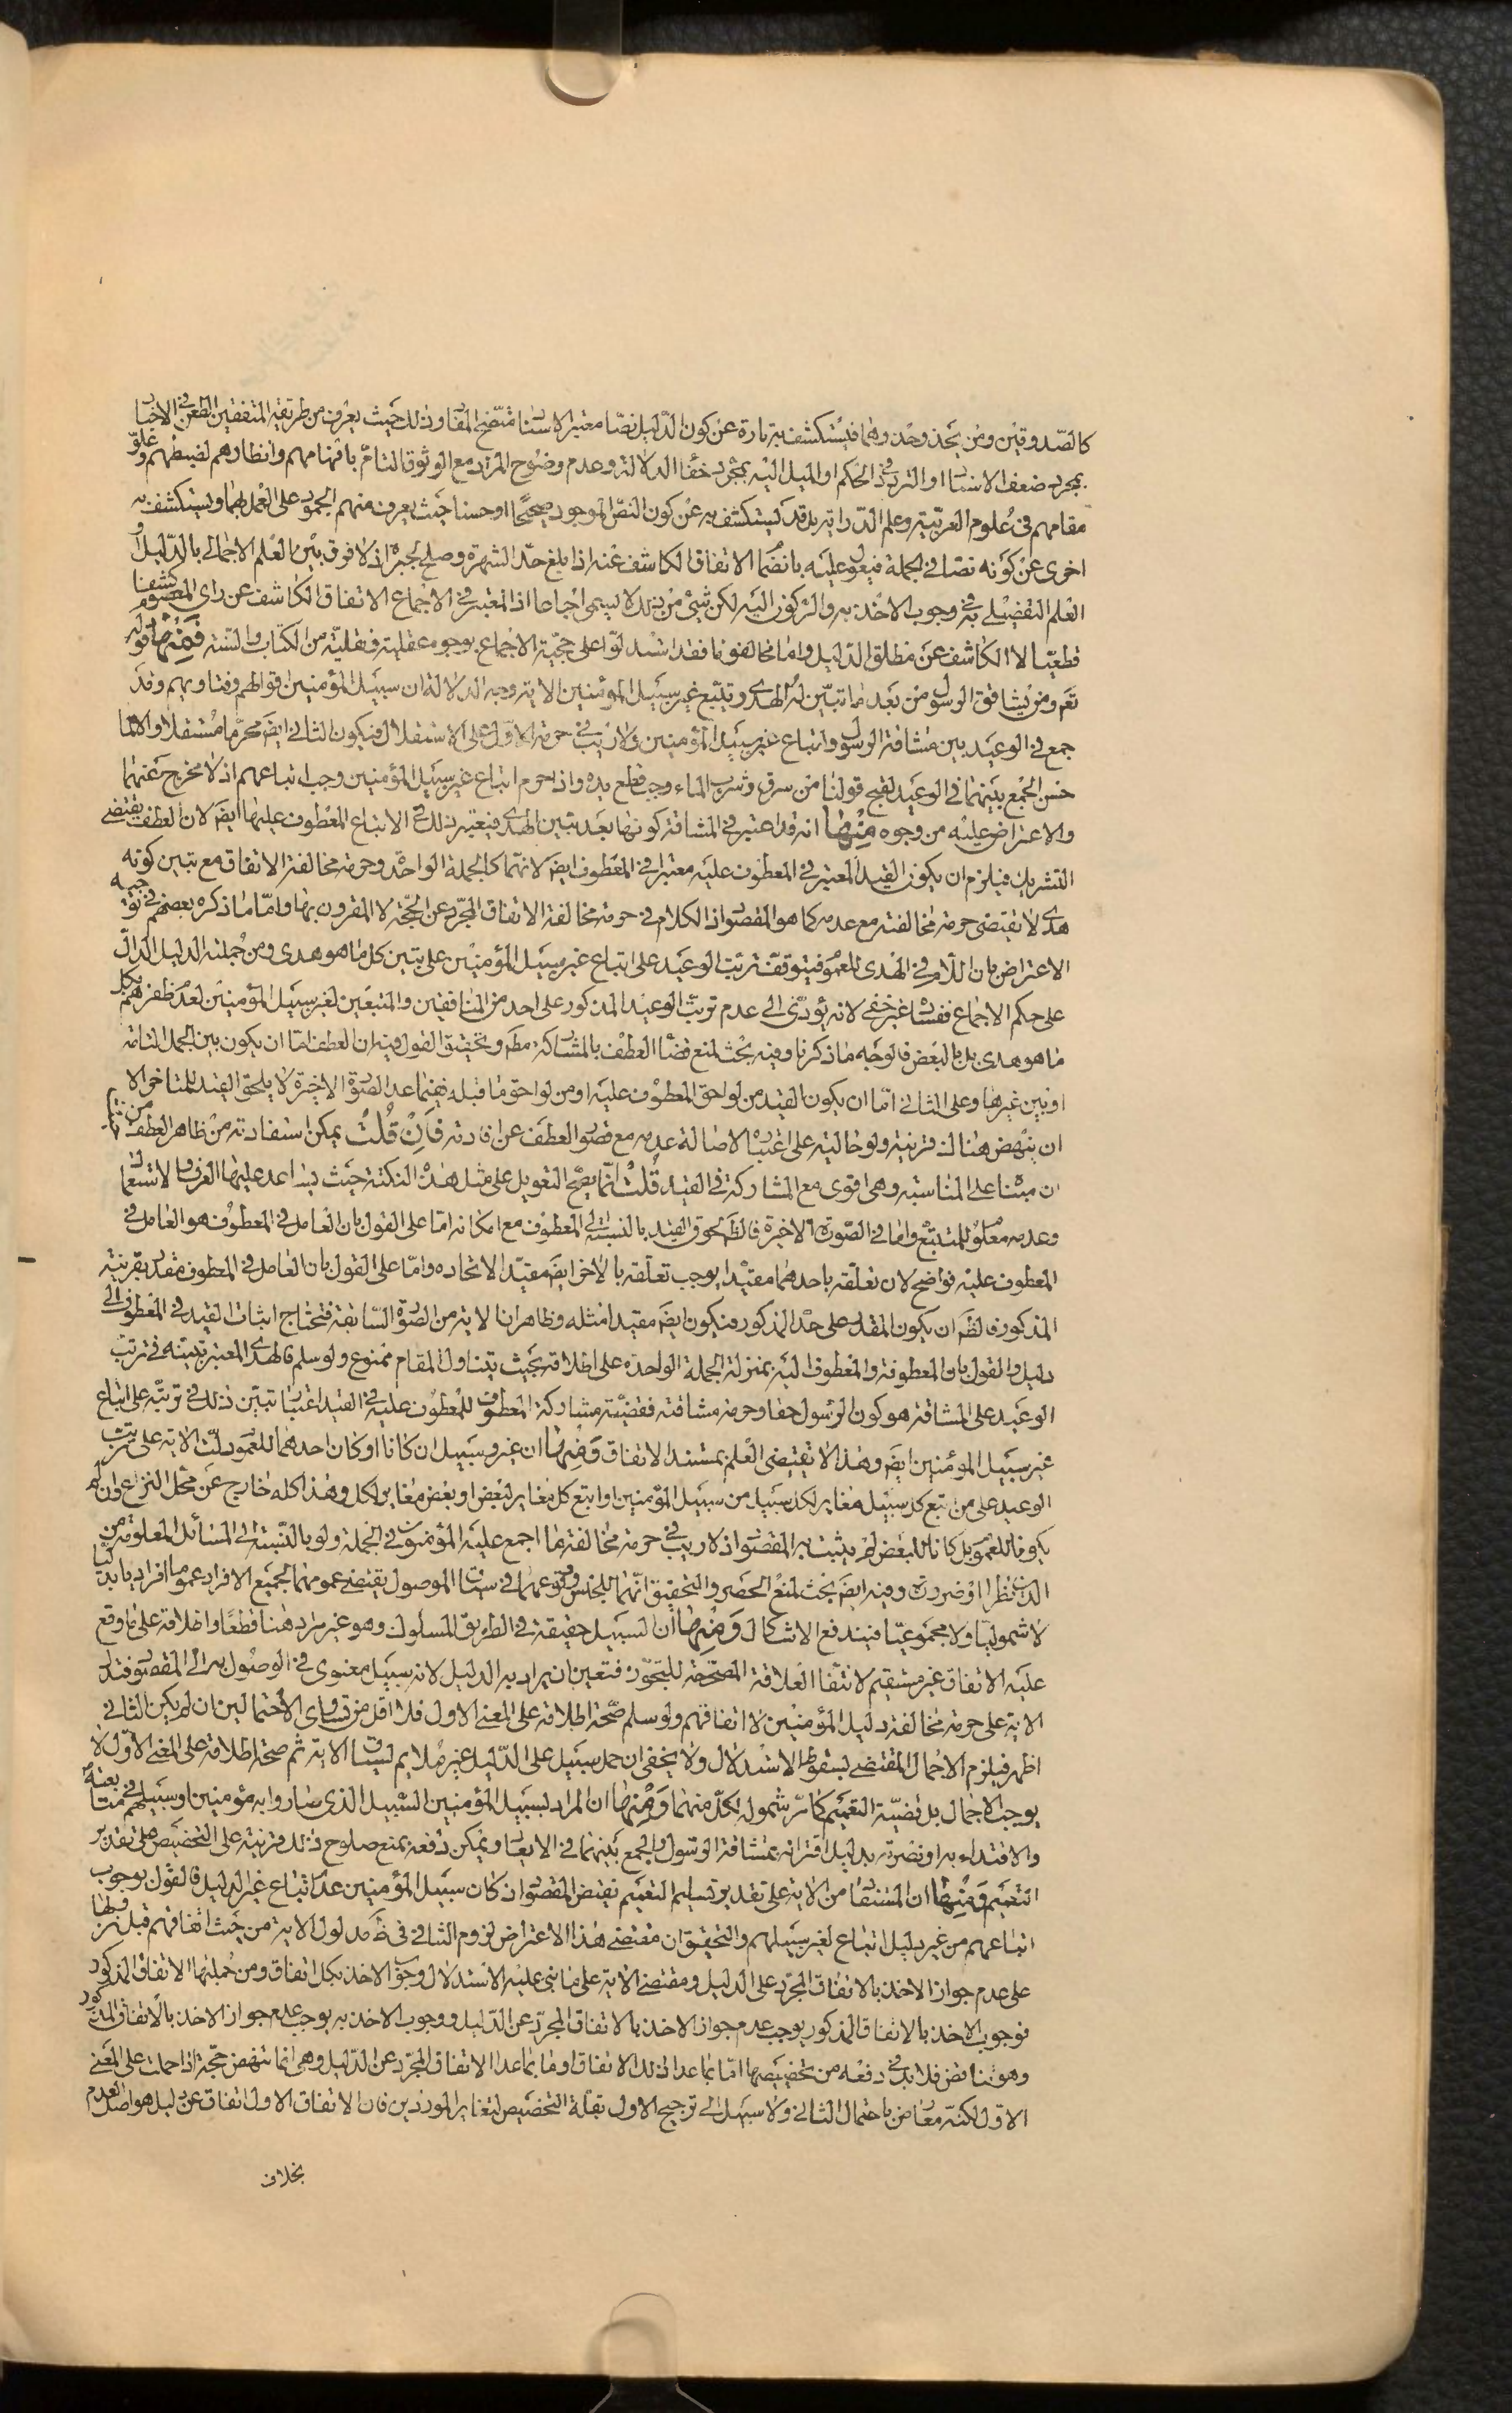 كالصّدوقين ومن يحذو حذوهما فيستكشف به تارة عن كون الدّليل نصّا معتبر الاسناد متّضح المفاد وذلك حيث يعرف من طريقة المتفقين الطعن في الاخبار
بمجرد ضعف الاسناد او التردد في الحكم او الميل اليه بمجرد خفاء الدلالة وعدم وضوح المراد مع الوثوق التام بافهامهم وانظارهم لضبطهم وعلوّ
مقامهم في علوم العربيّة وعلم الدّراية بل قد يستكشف به عن كون النصّ الموجود صحيحًا او حسنا حيث يعرف منهم الجمود على العمل بهما ويستكشف به
اخرى عن كونه نصّا في الجملة فيعول عليه بانضمام الاتفاق الكاشف عنه اذا بلغ حدّ الشهرة وصلح لجبره اذ لا فرق بين العلم الاجمالي بالدّليل او
العلم التفضيلي به في وجوب الاخذ به والركون اليه لكن شيء من ذلك لا يسمى اجماعا اذ المعتبر في الاجماع الاتفاق الكاشف عن راى المعصوم كشفا
قطعيّا لا الكاشف عن مطلق الدّليل واما مخالفونا فقد استدلّوا على حجيّة الاجماع بوجوه عقليّة ونقليّة من الكتاب والسّنة فمنها قوله
تعم ومن يشاقق الرسول من بعد ما تبيّن له الهدى ويتبع غير سبيل المؤمنين الاية وجه الدلالة ان سبيل المؤمنين اقوالهم وفتاويهم وقد
جمع في الوعيد بين مشاقة الرسول واتباع غير سبيل المؤمنين ولا ريب في حرمة الاوّل على الاستقلال فيكون الثاني ايضً محرّما مستقلا والا لما
حسن الجمع بينهما في الوعيد لقبح قولنا من سرق وشرب الماء وجب قطع يده واذا حرم اتباع غير سبيل المؤمنين وجب اتباعهم اذ لا مخرج عنهما
والاعتراض عليه من وجوه منها انه قد اعتبر في المشاقة كونها بعد تبين الهدى فيعتبر ذلك في الاتباع المعطوف عليها ايضً لان العطف يقتضي
التشريك فيلزم ان يكون القيد المعتبر في المعطوف عليه معتبرا في المعطوف ايضً لانهما كالجملة الواحدة وحرمة مخالفة الاتفاق مع تبين كونه
هدى لا تقتضى حرمة مخالفته مع عدمه كما هو المقصود اذ الكلام في حرمة مخالفة الاتفاق المجرّد عن الحجّة لا المقرون بها وامّا ما ذكره بعضهم في توجيه
الاعتراض بان اللّام في الهدى للعموم فيتوقف ترتب الوعيد على اتباع غير سبيل المؤمنين على تبين كل ما هو هدى ومن جملته الدليل الدالّ
على حكم الاجماع ففساده غير خفي لانه يؤدّى الى عدم ترتب الوعيد المذكور على احد من المنافقين والمتبعين لغير سبيل المؤمنين لعدم ظفرهم بكل
ما هو هدى بل بالبعض فالوجه ما ذكرنا وفيه بحث لمنع قضاء العطف بالمشاركة مطً وتحقيق القول فيه ان العطف امّا ان يكون بين الجمل التامّة
او بين غيرها وعلى الثاني امّا ان يكون القيد من لواحق المعطوف عليه او من لواحق ما قبله ففيما عدا الصّورة الاخيرة لا يلحق القيد للمتاخر الا
ان ينهض هناك قرينة ولو حالية على اعتباره لاصالة عدمه مع قصور العطف عن افادته فان قلت يمكن استفادته من ظاهر العطف من
ان مبناه على المناسبة وهى اقوى مع المشاركة في القيد قلت انّما يصحّ التعويل على مثل هذه النكتة حيث يساعد عليها العرف والاستعمال
وعدمه معلوم للمتتبّع واما في الصّورة الاخيرة فالظً لحوق القيد بالنسبة الى المعطوف مع امكانه امّا على القول بان العامل في المعطوف هو العامل في
المعطوف عليه فواضح لان تعلّقه باحدهما مقيّدا يوجب تعلّقه بالاخر ايضً مقيّدا لاتحاده وامّا على القول بان العامل في المعطوف مقدّر بقرينة
المذكور فالظً ان يكون المقدر على حدّ المذكور فيكون ايضً مقيدا مثله وظاهر ان الاية من الصّورة السّابقة فتحتاج اثبات القيد في المعطوف الى
دليل والقول بان المعطوف والمعطوف اليه بمنزلة الجملة الواحدة على اطلاقه بحيث يتناول المقام ممنوع ولو سلم فالهدى المعتبر تبينه في ترتب
الوعيد على المشاقة هو كون الرسول حقا وحرمة مشاقته فقضيّة مشاركة المعطوف للمعطوف عليه في القيد اعتبار تبيّن ذلك في ترتّبه على اتباع
غير سبيل المؤمنين ايضً وهذا لا يقتضى العلم بمستند الاتفاق ومنها ان غير وسبيل ان كانا او كان احدهما للعموم دلّت الاية على ترتب
الوعيد على من اتبع كل سبيل مغاير لكل سبيل من سبيل المؤمنين او اتبع كل مغاير لبعض او بعض مغاير لكل وهذا كله خارج عن محل النزاع وان لم
يكونا للعموم بل كانا للبعض لم يثبت به المقصود اذ لا ريب في حرمة مخالفة ما اجمع عليه المؤمنون في الجملة ولو بالنّسبة الى المسائل المعلومة من
الدّين نظرا او ضرورة وفيه ايضً بحث لمنع الحصر والتحقيق انّهما للجنس ووقوعهما في سياق الموصول يقتضى عمومهما لجميع الافراد عموما افراديا بدليّا
لا شموليّا ولا مجموعيّا فيندفع الاشكال ومنها ان السبيل حقيقة في الطريق المسلوك وهو غير مراد هنا قطعًا واطلاقه على ما وقع
عليه الاتفاق غير مستقيم لانتفاء العلاقة المصحّحة للتجوّز فتعين ان يراد به الدليل لانه سبيل معنوى في الوصول به الى المقصود فتدل
الاية على حرمة مخالفة دليل المؤمنين لا اتفاقهم ولو سلم صحّة اطلاقه على المعنى الاول فلا اقل من تساوى الاحتمالين ان لم يكن الثاني
اظهر فيلزم الاجمال المقتضى لسقوط الاستدلال ولا يخفى ان حمل سبيل على الدّليل غير ملايم لسياق الاية ثم صحة اطلاقه على المعنى الاوّل لا
يوجب الاجمال بل قضيّة التعميم كما مرّ شموله لكلّ منهما ومنها ان المراد بسبيل المؤمنين السّبيل الذى صاروا به مؤمنين او سبيلهم في متابعته
والاقتداء به او نصرته بدليل اقترانه بمشاقة الرسول والجمع بينهما في الايعاد ويمكن دفعه بمنع صلوح ذلك قرينة على التخصيص على تقدير
التعميم ومنها ان المستفاد من الاية على تقدير تسليم التعميم نقيض المقصود ان كان سبيل المؤمنين عدم اتباع غير الدليل فالقول بوجوب
اتباعهم من غير دليل اتباع لغير سبيلهم والتحقيق ان مقتضى هذا الاعتراض لزوم التنافى في ظً مدلول الاية من حيث اتفاقهم قبل نزولها
على عدم جواز الاخذ بالاتفاق المجرّد على الدليل ومقتضى الاية على ما بنى عليه الاستدلال وجوب الاخذ بكل اتفاق ومن جملتها الاتفاق المذكور
فوجوب الاخذ بالاتفاق المذكور يوجب عدم جواز الاخذ بالاتفاق المجرّد عن الدّليل ووجوب الاخذ به يوجب عدم جواز الاخذ بالاتفاق المذكور
وهو تناقض فلا بد في دفعه من تخصيصها امّا بما عدا ذلك الاتفاق او بما عدا الاتفاق المجرّد عن الدّليل وهى انما تنهض حجّة اذا حملت على المعنى
الاوّل لكنّه معارض باحتمال الثانى ولا سبيل الى ترجيح الاول بقلّة التخصيص لتغاير الموردين فان الاتفاق الاول اتفاق عن دليل هو اصل العدم
بخلاف